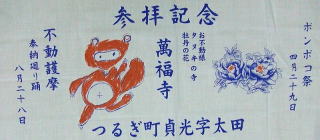 参拝記念
ポンポコ祭
四月二十九日
お不動様
タヌキの寺
牡丹の花
萬福寺
不動護摩
奉納廻り踊
八月二十八日
つるぎ町貞光字太田